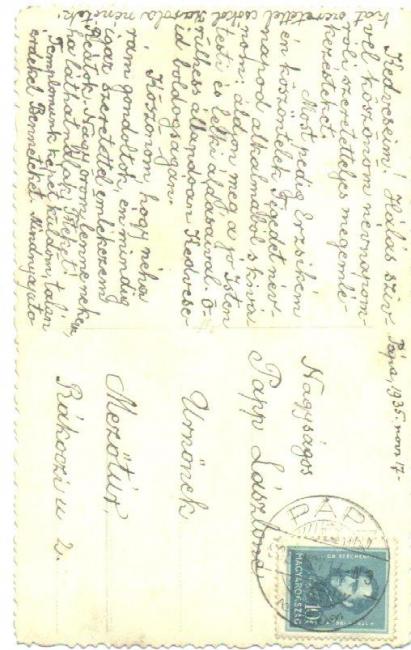 Pápa, 1935. nov. 17-
Kedveseim! Hálás szív-
vel köszönöm névnapom-
ról szeretettjes megemlé-
kezésteket.
Most pedig Erzsikém
én köszöntelek Tégedet név-
napod alkalmából s kívá-
nom: áldjon meg a jó Isten
testi és lelki áldásával. Ö-
rülhess állandóan Kedvese-
id boldogságán.
Köszönöm, hogy néha
rám gondoltok, én mindig
igaz szeretettel emlékezem
Reátok. Nagy öröm lenne nekem,
ha láthatnálak Titeket!
Templomunk képét küldöm, talán
érdekel Benneteket. Mindnyájato-
kat szeretettel csókol
Nagyságos
Papp Lászlóné
Úrnőnek
Mezőtúr,
Rákóczi u 2.
PÁPA
GR. SZÉCHENYI
MAGYARORSZÁG
10